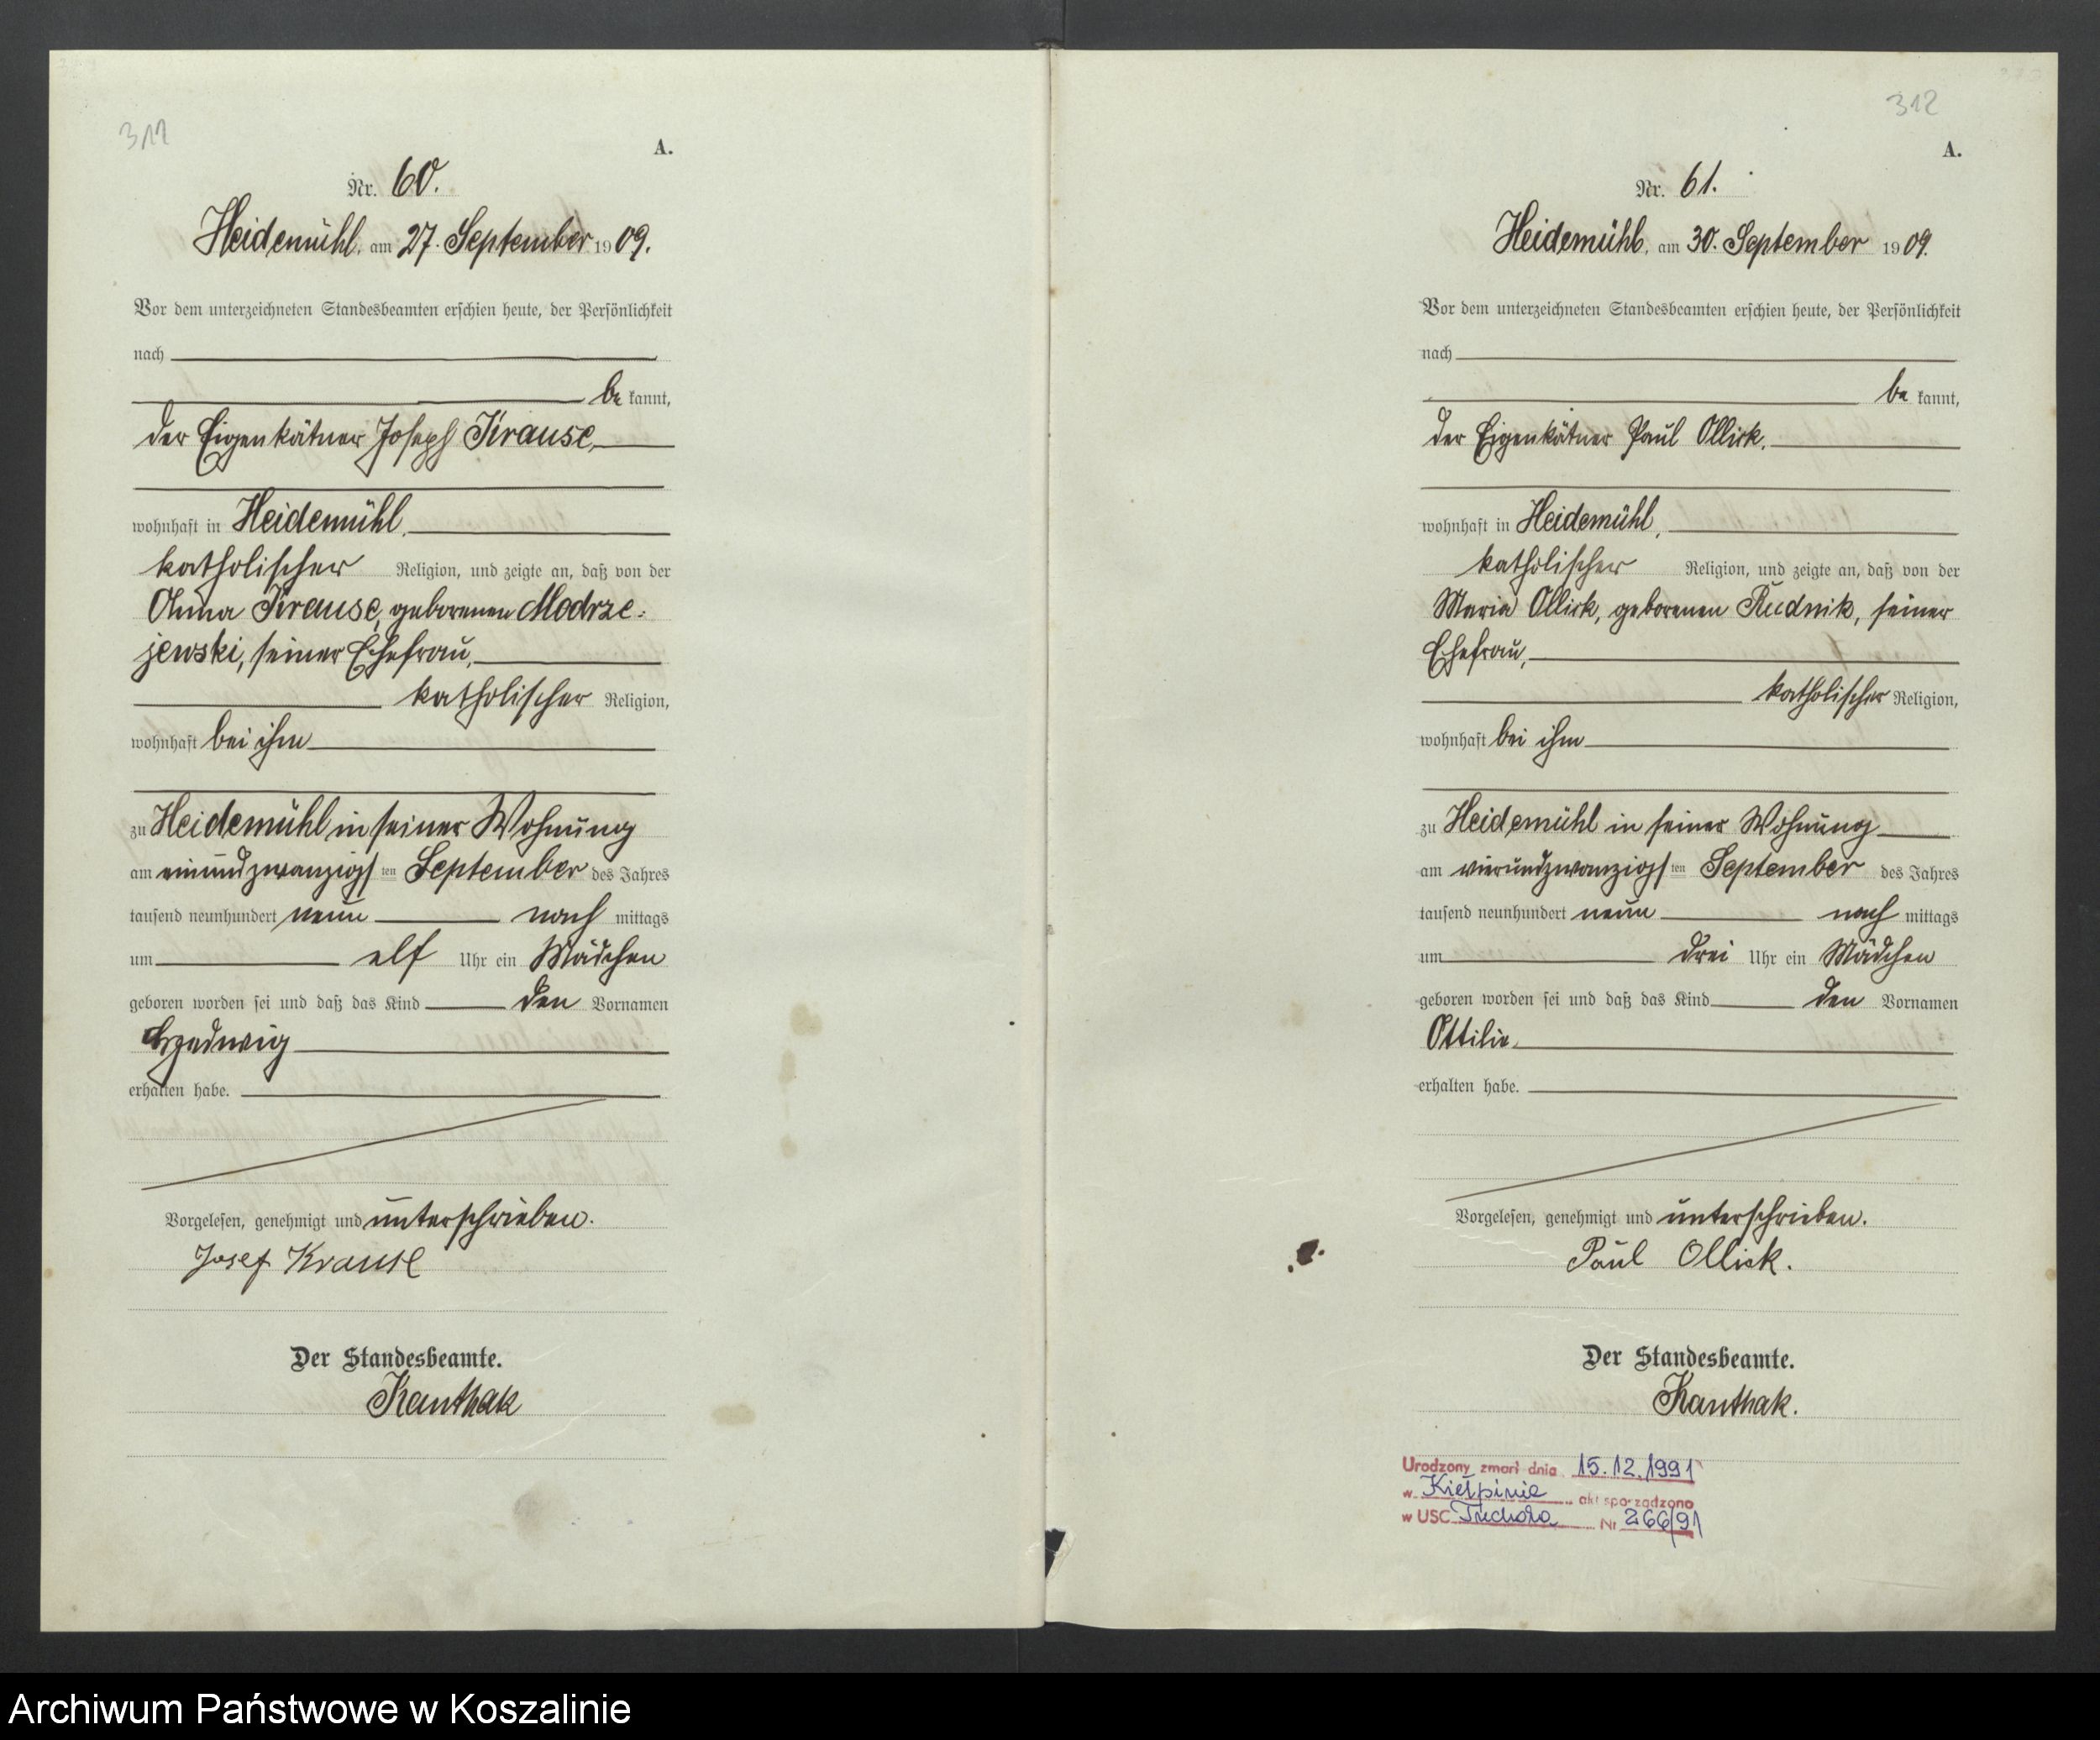 311
A.
Nr. 60.
Heidemühl, am 27. September 1909.
Vor dem unterzeichneten Standesbeamten erschien heute, der Persönlichkeit
nach
be kannt,
der Eigenkätner Joseph Krause,
wohnhaft in Heidemühl,
katholischer Religion, und zeigte an, daß von der
Anna Krause, geborenen Modrze-
jewski, seiner Ehefrau,
katholischer Religion,
wohnhaft bei ihm
zu Heidemühl in seiner Wohnung
am einundzwanzigsten September des Jahres
tausend neunhundert neun nach mittags
um elf Uhr ein Mädchen
geboren worden sei und daß das Kind den Vornamen
Hedwig
erhalten habe.
Vorgelesen, genehmigt und unterschrieben.
Josef Krause
Der Standesbeamte.
Kanthak
312
A.
Nr. 61.
Heidemühl, am 30. September 1909.
Vor dem unterzeichneten Standesbeamten erschien heute, der Persönlichkeit
nach
be kannt,
der Eigenkätner Paul Ollick,
wohnhaft in Heidemühl,
katholischer Religion, und zeigte an, daß von der
Maria Ollick, geborenen Rudnik, seiner
Ehefrau,
katholischer Religion,
wohnhaft bei ihm
zu Heidemühl in seiner Wohnung
am vierundzwanzigsten September des Jahres
tausend neunhundert neun nach mittags
um drei Uhr ein Mädchen
geboren worden sei und daß das Kind den Vornamen
Ottilie
erhalten habe.
Vorgelesen, genehmigt und unterschrieben.
Paul Ollick.
Der Standesbeamte.
Kanthak.
Urodzony zmarł dnia 15.12.1991
w Kiełpinie akt sporządzono
w USC Tuchola Nr 266/91
Archiwum Państwowe w Koszalinie